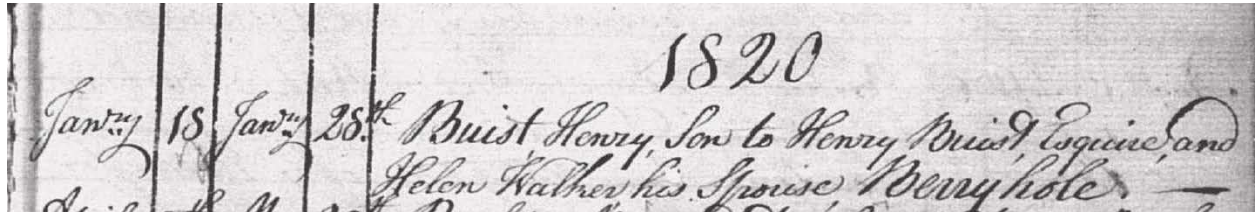 1820
Janry 18 Janry 28th Buist, Henry, Son to Henry Buist, Esquire, and
Helen Walker his Spouse, Berryhole. —